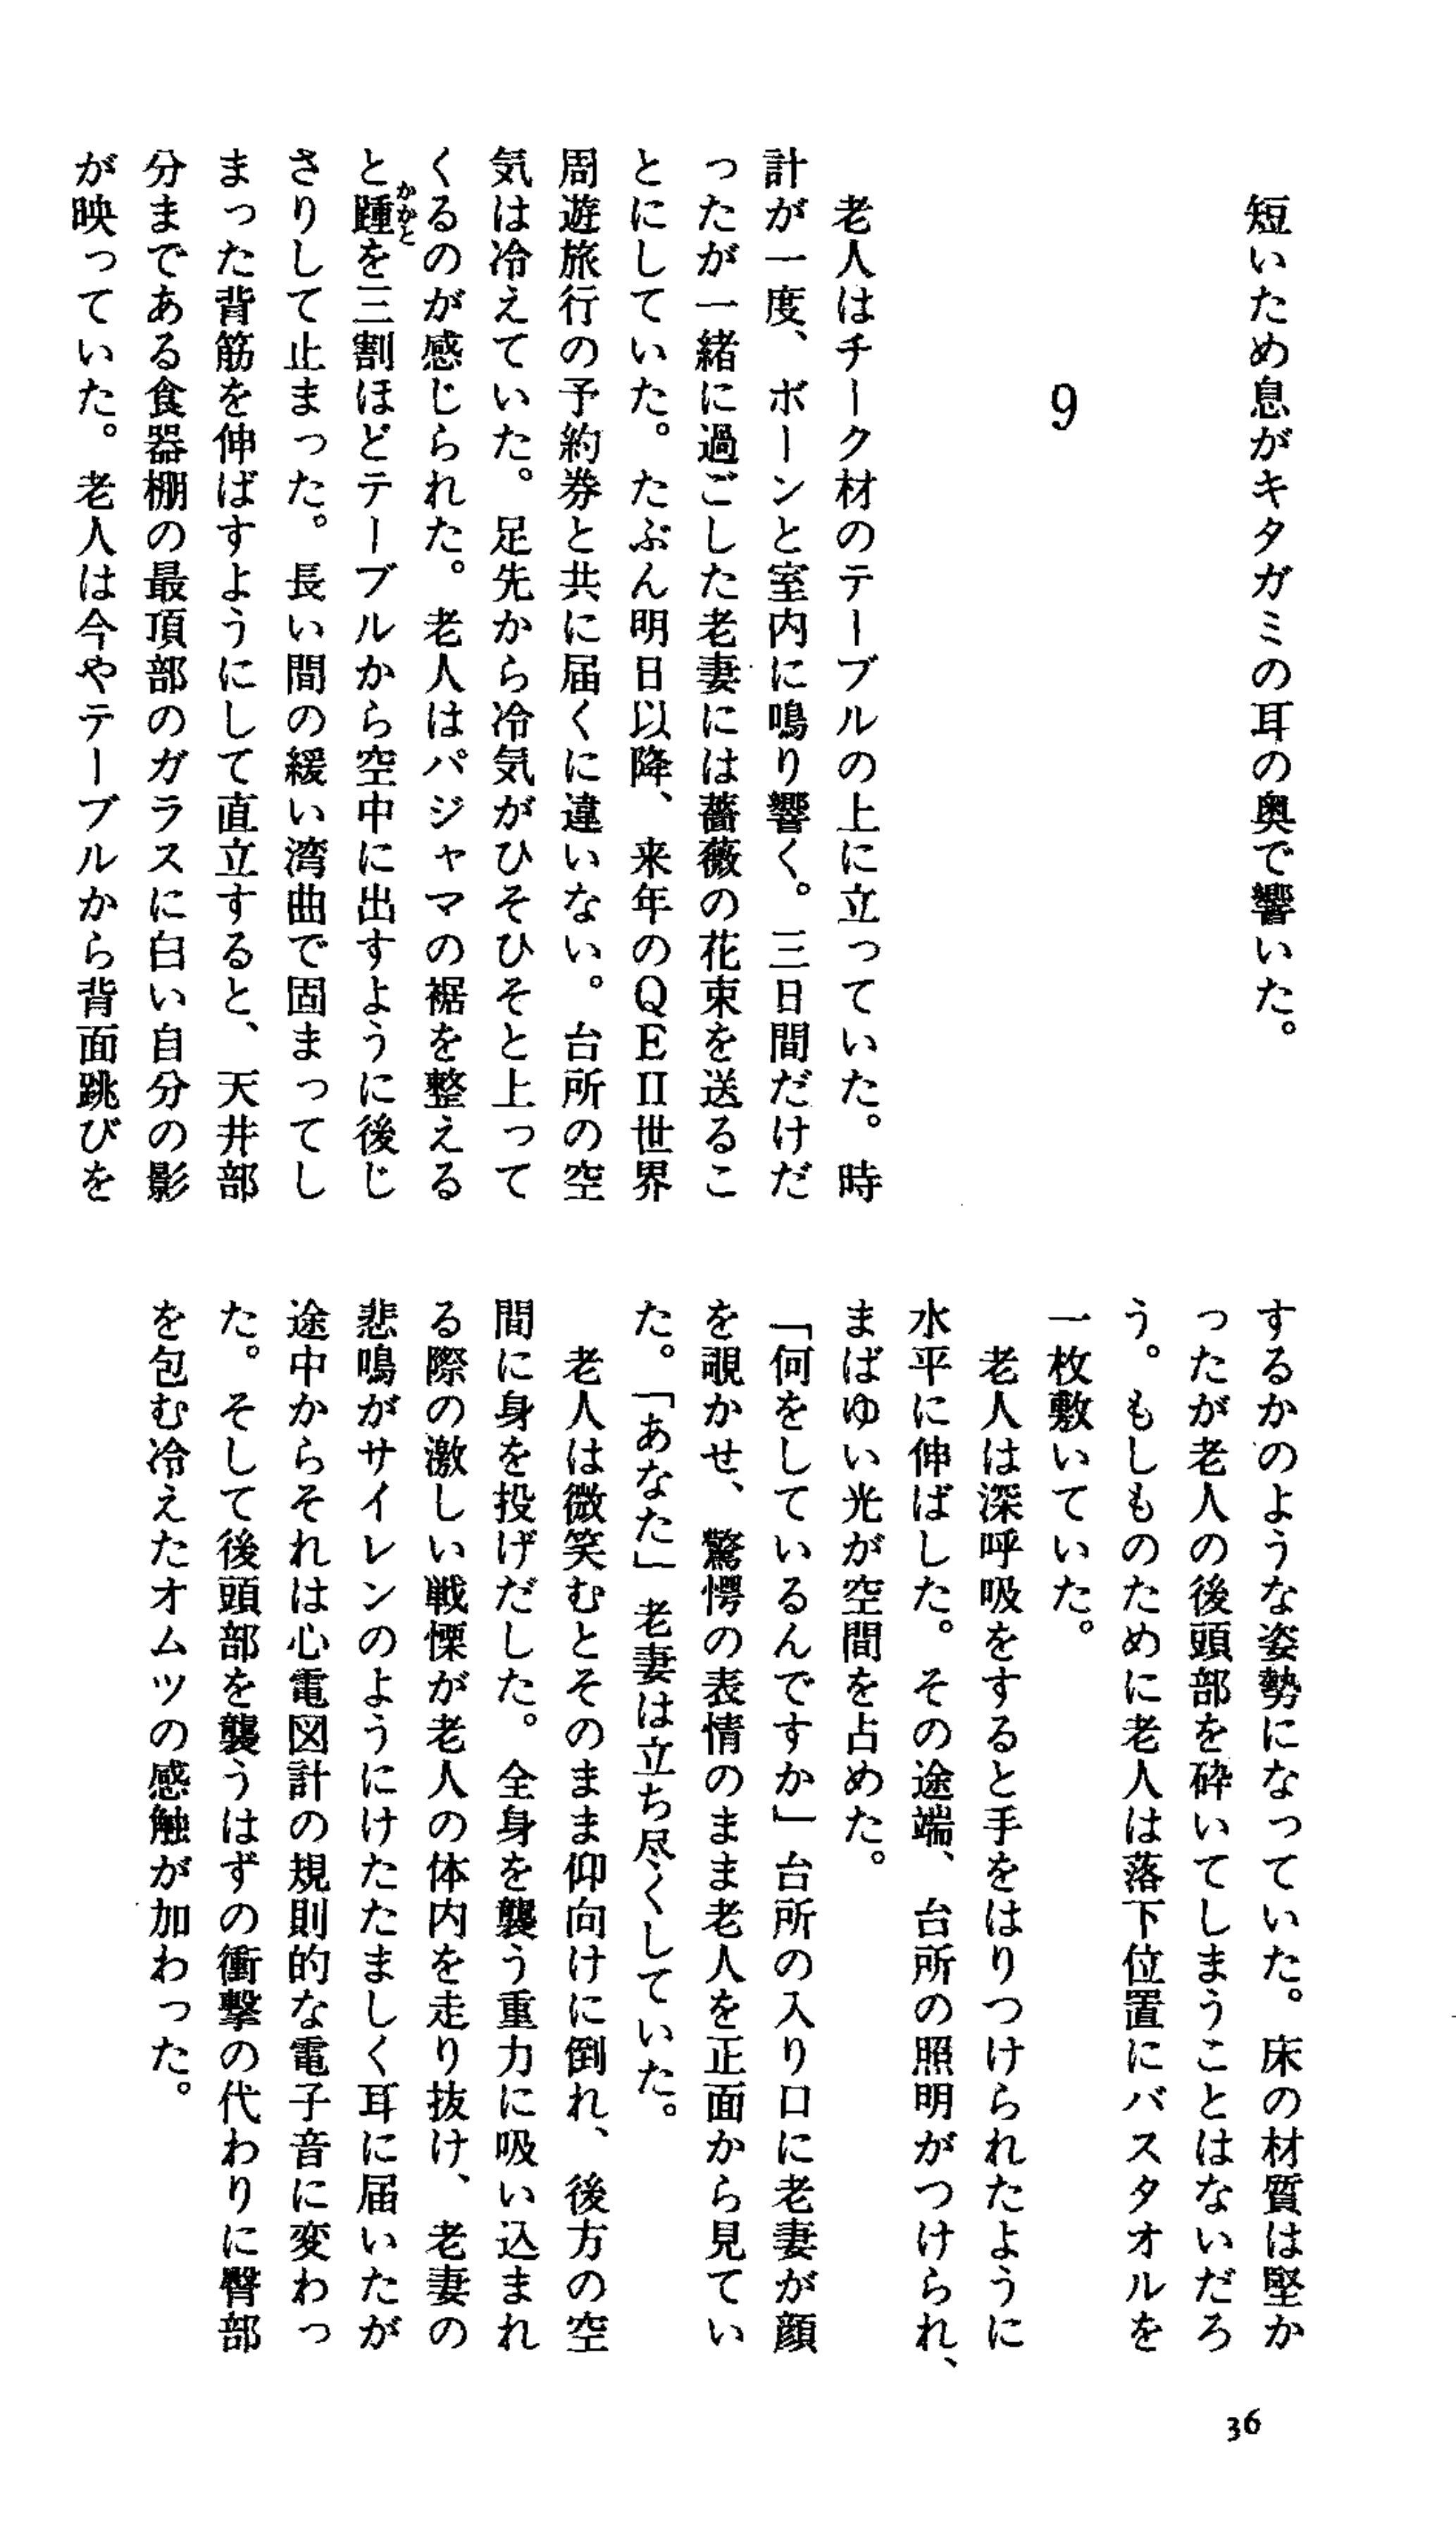 短いため息がキタガミの耳の奥で響いた。
9
老人はチーク材のテーブルの上に立っていた。時
計が一度、ボーンと室内に鳴り響く。三日間だけだ
ったが一緒に過ごした老妻には薔薇の花束を送るこ
とにしていた。たぶん明日以降、来年のQEⅡ世界
周遊旅行の予約券と共に届くに違いない。台所の空
気は冷えていた。足先から冷気がひそひそと上って
くるのが感じられた。老人はパジャマの裾を整える
と踵かかとを三割ほどテーブルから空中に出すように後じ
さりして止まった。長い間の緩い湾曲で固まってし
まった背筋を伸ばすようにして直立すると、天井部
分まである食器棚の最頂部のガラスに白い自分の影
が映っていた。老人は今やテーブルから背面跳びを
するかのような姿勢になっていた。床の材質は堅か
ったが老人の後頭部を砕いてしまうことはないだろ
う。もしものために老人は落下位置にバスタオルを
一枚敷いていた。
老人は深呼吸をすると手をはりつけられたように
水平に伸ばした。その途端、台所の照明がつけられ、
まばゆい光が空間を占めた。
「何をしているんですか」台所の入り口に老妻が顔
を覗かせ、驚愕の表情のまま老人を正面から見てい
た。「あなた」老妻は立ち尽くしていた。
老人は微笑むとそのまま仰向けに倒れ、後方の空
間に身を投げだした。全身を襲う重力に吸い込まれ
る際の激しい戦慄が老人の体内を走り抜け、老妻の
悲鳴がサイレンのようにけたたましく耳に届いたが
途中からそれは心電図計の規則的な電子音に変わっ
た。そして後頭部を襲うはずの衝撃の代わりに臀部
を包む冷えたオムツの感触が加わった。
36